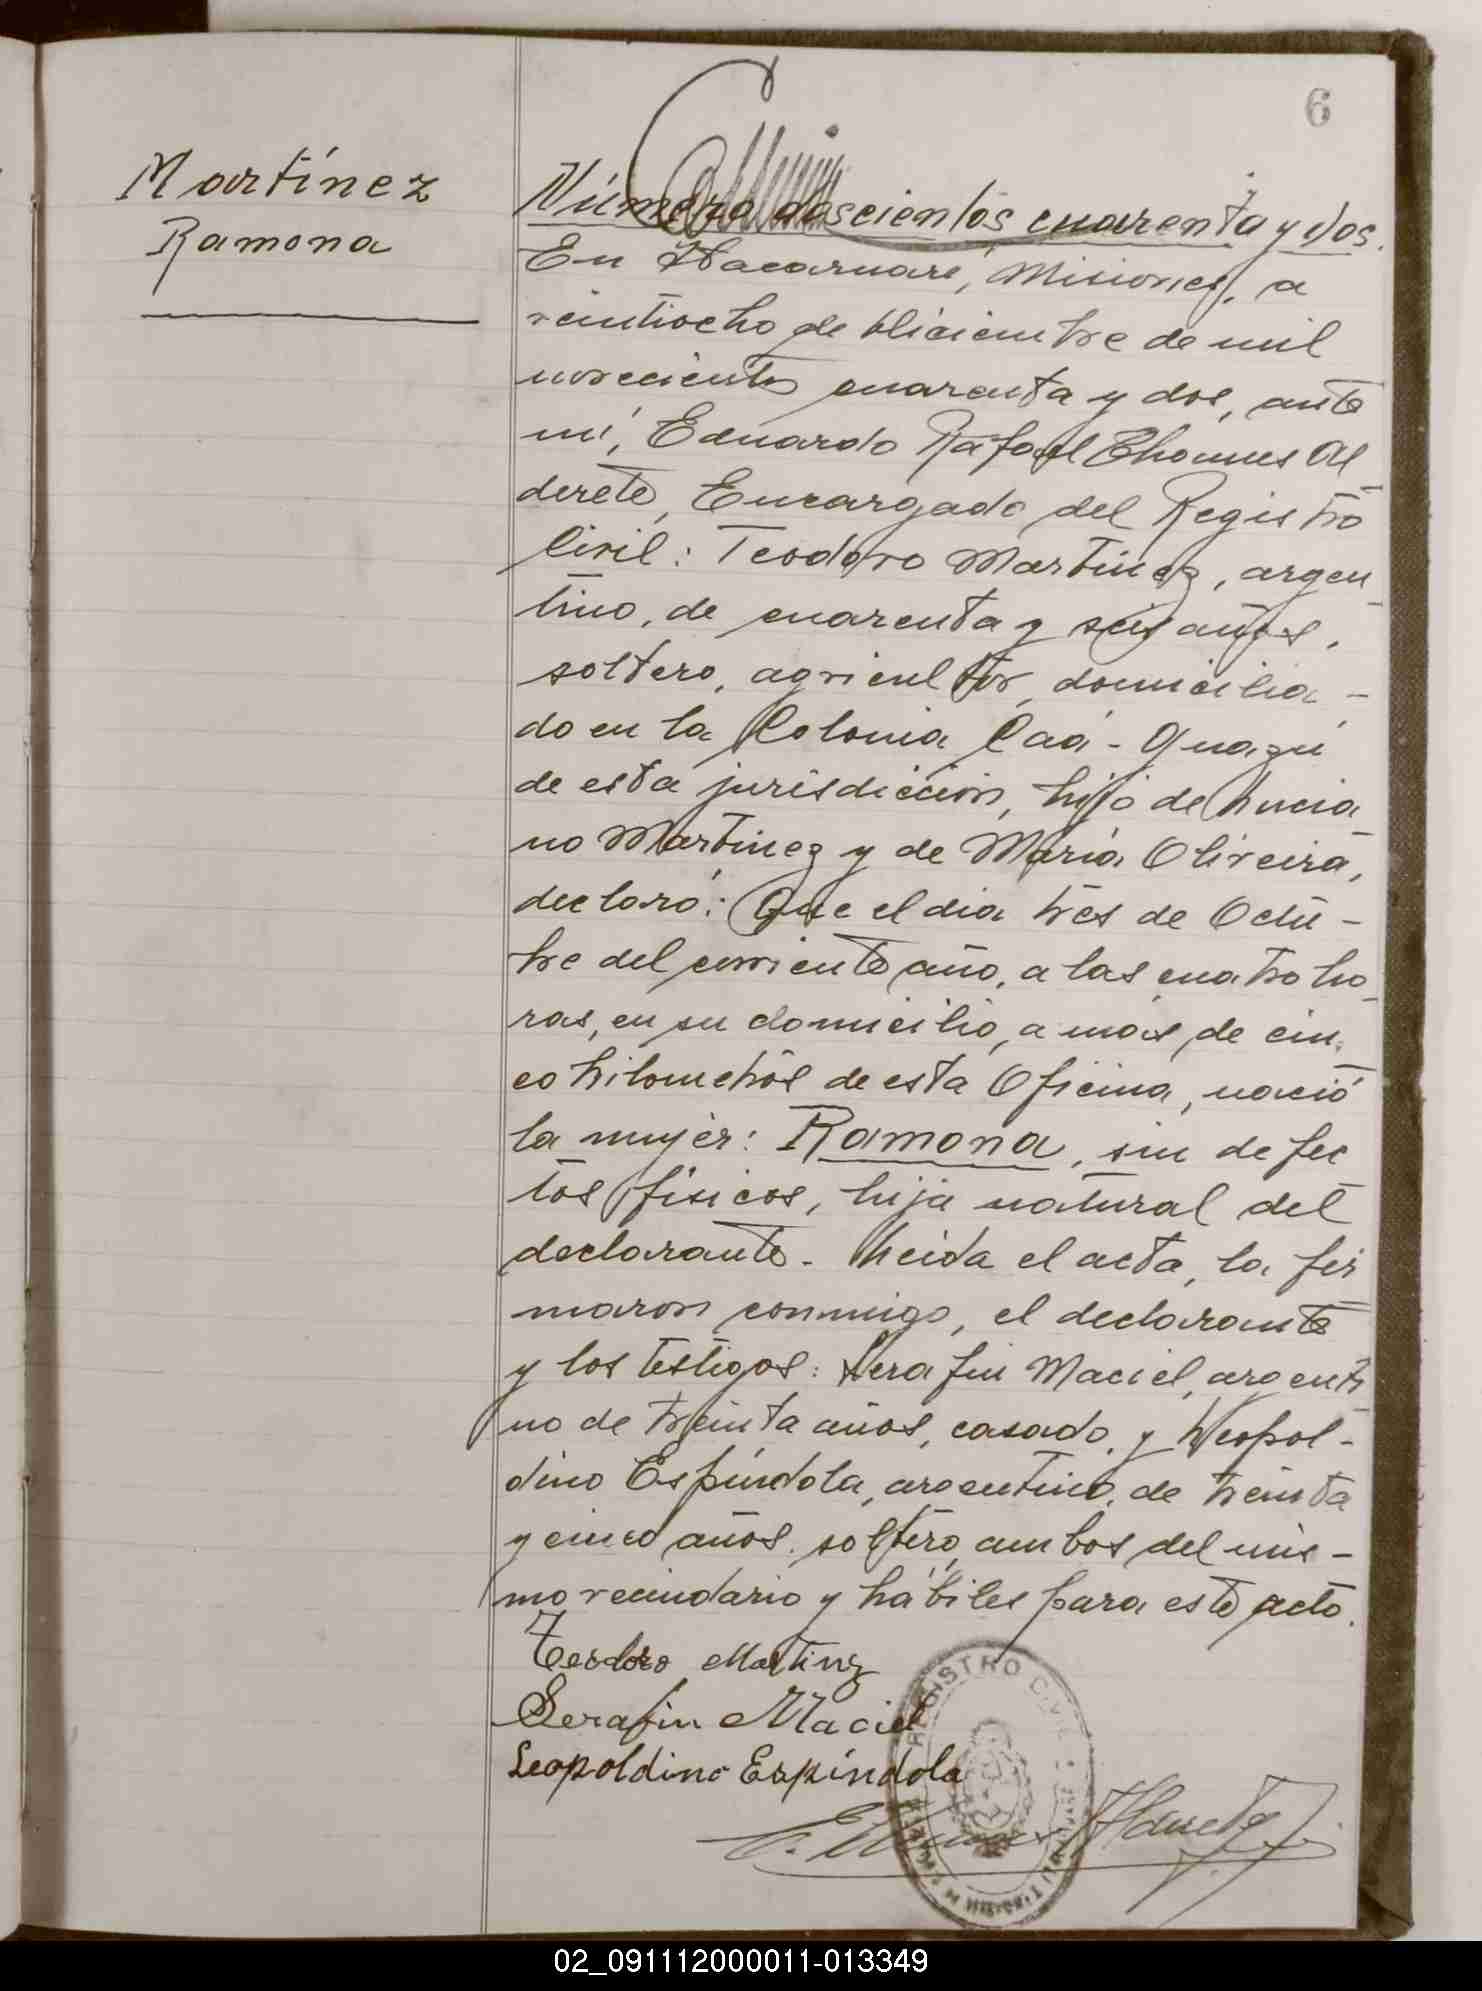 6
Martínez
Ramona
Número doscientos cuarenta y dos.
En Itacaruaré, Misiones, a
veintiocho de Diciembre de mil
novecientos cuarenta y dos, ante
mí, Eduardo Rafael Ehomes Al
derete, Encargado del Registro
Civil: Teodoro Martínez, argen
tino, de cuarenta y seis años,
soltero, agricultor, domicilia-
do en la Colonia Caá-Guazú
de esta jurisdicción, hijo de Lucia
no Martínez y de María Oliveira,
declaró: Que el día tres de Octu-
bre del corriente año, a las cuatro ho-
ras, en su domicilio, a más de cin-
co kilometros de esta Oficina, nació
la mujer: Ramona, sin defec
tos físicos, hija natural del
declarante. Leida el acta, la fir
maron conmigo, el declarante
y los testigos: Serafin Maciel, argenti
no de treinta años, casado, y Leopol-
dino Espíndola, argentino, de treinta
y cinco años, soltero, ambos del mis-
mo vecindario y hábiles para este acto.
Teodoro Martinz
Serafin Maciel
Leopoldino Espíndola
REGISTRO CIVIL
02_091112000011-013349